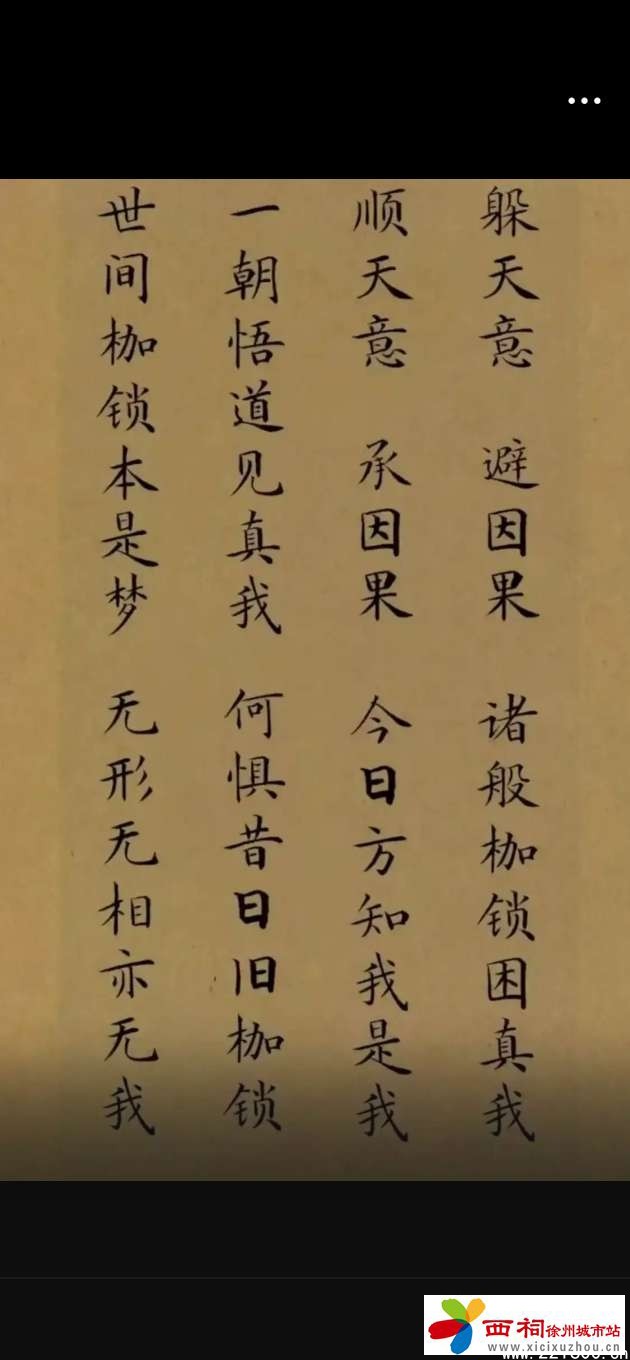 躲天意 避因果 诸般枷锁困真我
顺天意 承因果 今日方知我是我
一朝悟道见真我 何惧昔日旧枷锁
世间枷锁本是梦 无形无相亦无我
西祠徐州城市站
www.xicixuzhou.cn